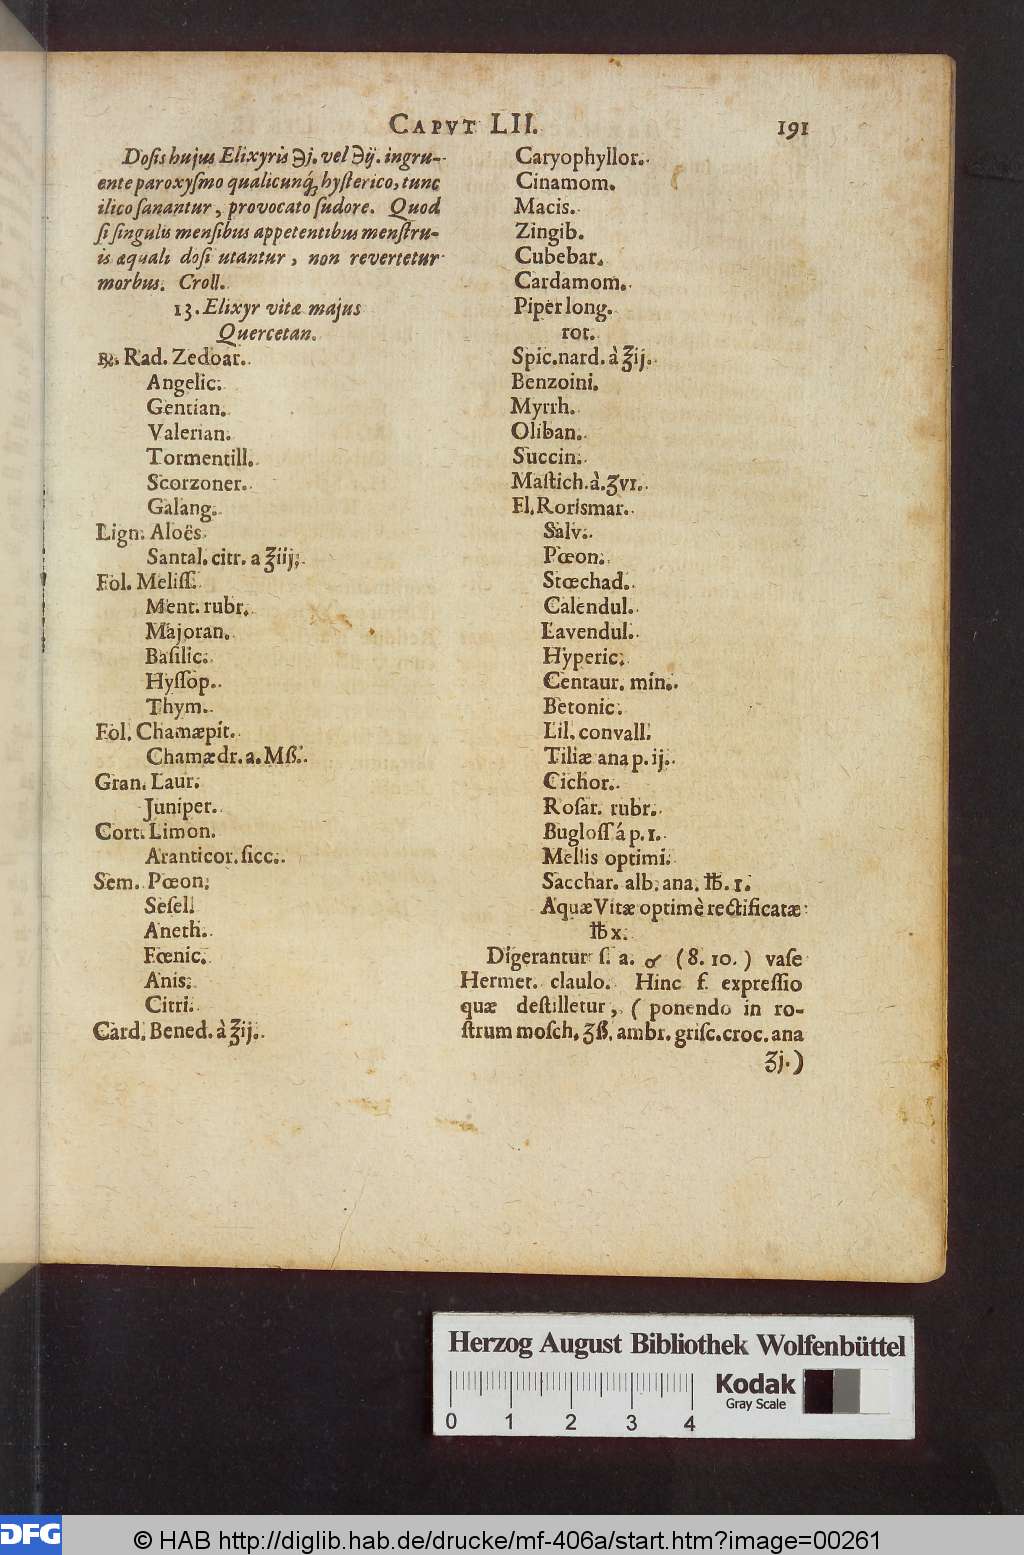 CAPVT LII. 191
Dosis hujus Elixyris ℈j. vel ℈ij. ingru-
ente paroxysmo qualicunq́ꝫ hysterico, tunc
ilico sanantur, provocato sudore. Quod
si singulis mensibus appetentibus menstru-
is æquali dosi utantur, non revertetur
morbus. Croll.
13. Elixyr vitæ majus
Quercetan.
℞. Rad. Zedoar.
Angelic.
Gentian.
Valerian.
Tormentill.
Scorzoner.
Galang.
Lign. Aloës
Santal. citr. a ℥iij.
Fol. Meliſſ.
Ment. rubr.
Majoran.
Baſilic.
Hyſſop.
Thym.
Fol. Chamæpit.
Chamædr. a. Mß.
Gran. Laur.
Juniper.
Cort. Limon.
Aranticor. ſicc.
Sem. Pœon.
Seſel.
Aneth.
Fœnic.
Anis.
Citri.
Card. Bened. à ℥ij.
Caryophyllor.
Cinamom.
Macis.
Zingib.
Cubebar.
Cardamom.
Piper long.
rot.
Spic. nard. à ℥ij.
Benzoini.
Myrrh.
Oliban.
Succin.
Maſtich. à. ʒvi.
Fl. Rorismar.
Salv.
Pœon.
Stœchad.
Calendul.
Lavendul.
Hyperic.
Centaur. min.
Betonic.
Lil. convall.
Tiliæ ana p. ij.
Cichor.
Roſar. rubr.
Bugloſſ á p. 1.
Mellis optimi.
Sacchar. alb. ana. ℔. 1.
Aquæ Vitæ optimè rectificatæ
℔ x.
Digerantur ſ. a. (8. 10.) vaſe
Hermet. clauſo. Hinc f. expreſſio
quæ deſtilletur, (ponendo in ro-
ſtrum moſch. ʒß. ambr. griſc. croc. ana
ʒj.)
Herzog August Bibliothek Wolfenbüttel
Kodak
Gray Scale
0 1 2 3 4
DFG
© HAB http://diglib.hab.de/drucke/mf-406a/start.htm?image=00261